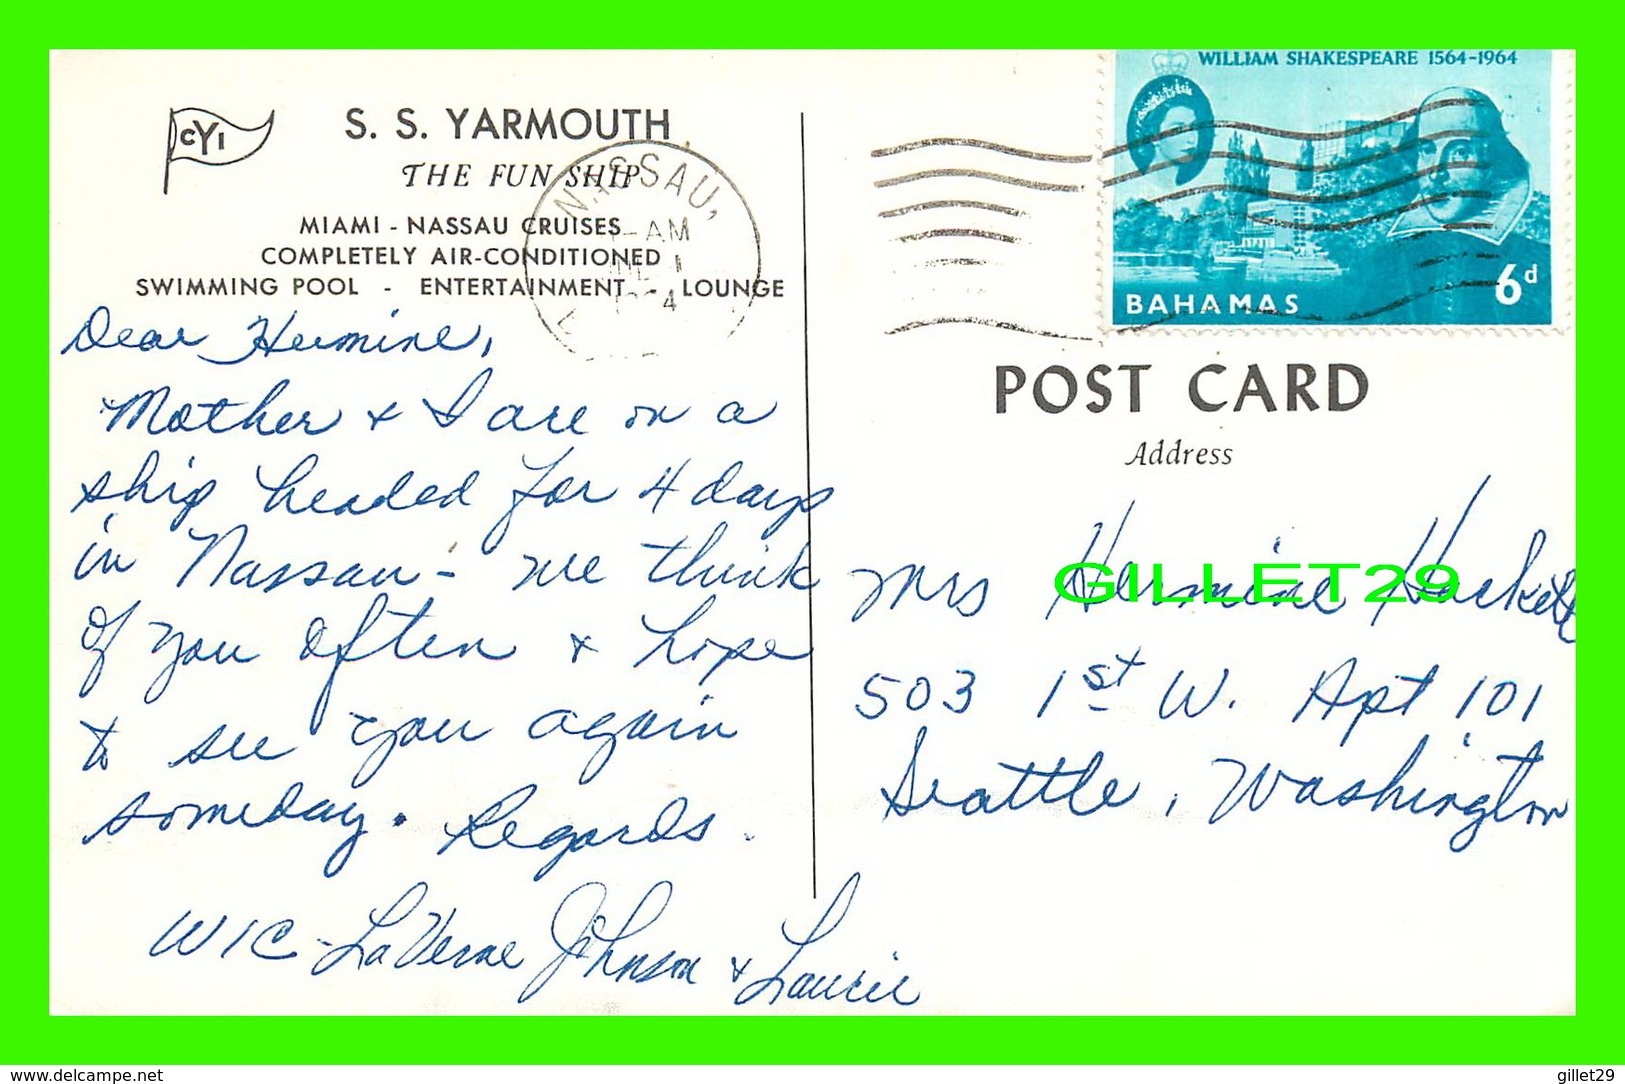 CYI
S. S. YARMOUTH
THE FUN SHIP
MIAMI - NASSAU CRUISES
COMPLETELY AIR-CONDITIONED
SWIMMING POOL - ENTERTAINMENT - LOUNGE
NASSAU,
AM
Dear Hermine,
Mother & I are on a
ship headed for 4 days
in Nassau - we think
of you often & hope
to see you again
someday. Regards.
WIC - LaVerne Johnson & Laurie
WILLIAM SHAKESPEARE 1564-1964
BAHAMAS 6d
POST CARD
Address
Mrs Hermine Hackett
503 1st W. Apt 101
Seattle, Washington
GILLET29
www.delcampe.net
gillet29